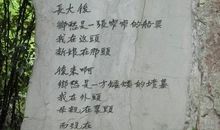 長大後
鄉愁是一張窄窄的船票
我在這頭
新娘在那頭
後來啊
鄉愁是一方矮矮的墳墓
我在外頭
母親在裏頭
而現在